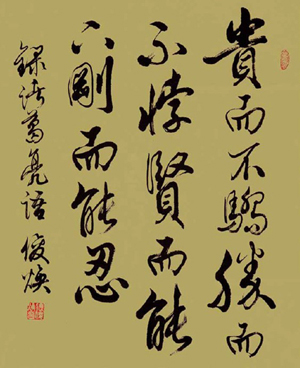 貴而不驕勝而
不悖賢而能
下剛而能忍
録諸葛亮語 俊煥